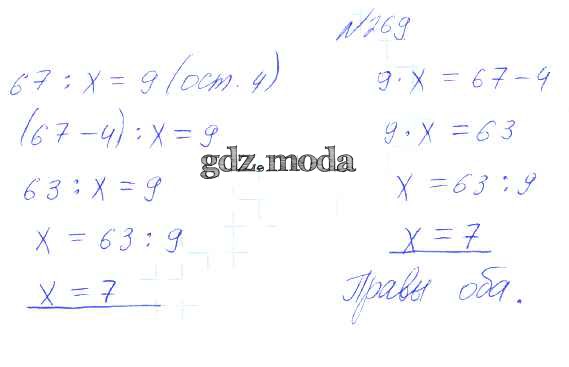 №269
67 : x = 9 (ост. 4)
(67-4) : x = 9
63 : x = 9
x = 63 : 9
x = 7
9 · x = 67-4
9 · x = 63
x = 63 : 9
x = 7
Правы оба.
gdz.moda